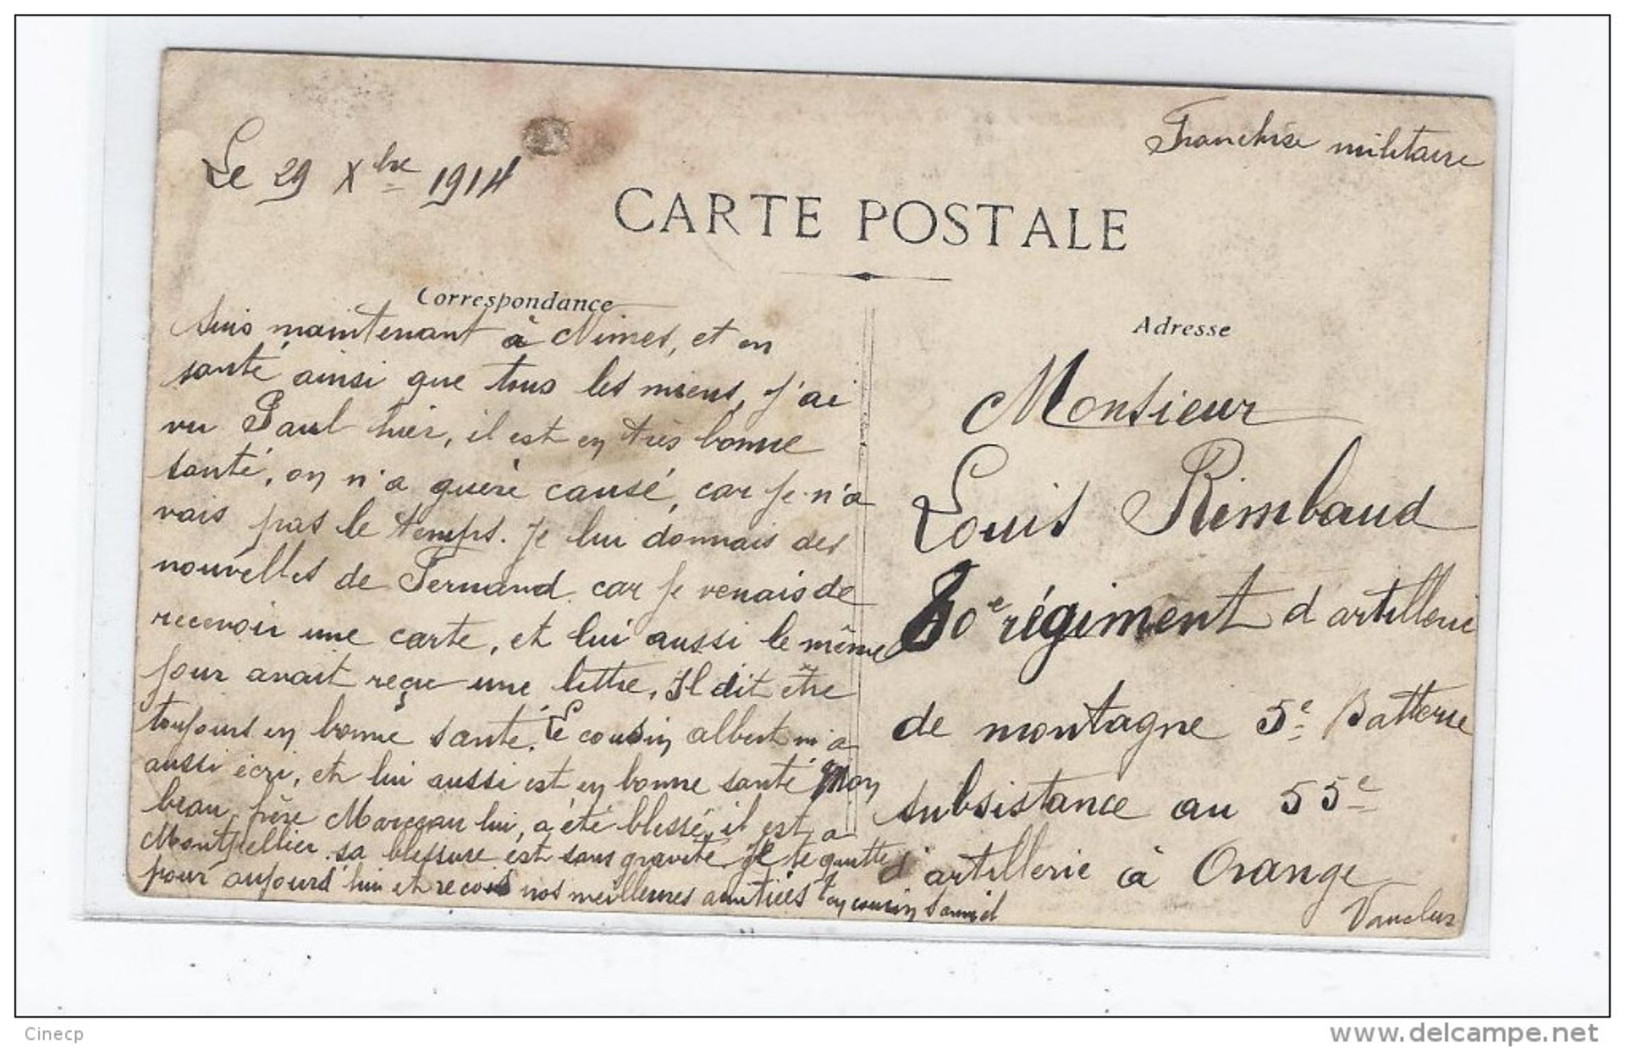 Franchise militaire
Le 29 Xbre 1914
CARTE POSTALE
Correspondance
Suis maintenant à Nimes, et en
santé, ainsi que tous les miens, j'ai
vu Paul hier, il est en très bonne
santé, on n'a guère causé, car je n'a
vais pas le temps. Je lui donnais des
nouvelles de Fernand car je venais de
recevoir une carte, et lui aussi le même
jour avait reçu une lettre, Il dit être
toujours en bonne santé. Le cousin albert m'a
aussi écri, et lui aussi est en bonne santé Mon
beau frère Marceau lui, a été blessé, il est a
Montpellier. sa blessure est sans gravité. Je te quitte
pour aujourd'hui et recois nos meilleures amitiés ton cousin Daniel
Adresse
Monsieur
Louis Rimbaud
régiment d'artillerie
de montagne 5e Batterie
subsistance au 55e
d'artillerie à Orange
Vaucluse
Cinecp
www.delcampe.net